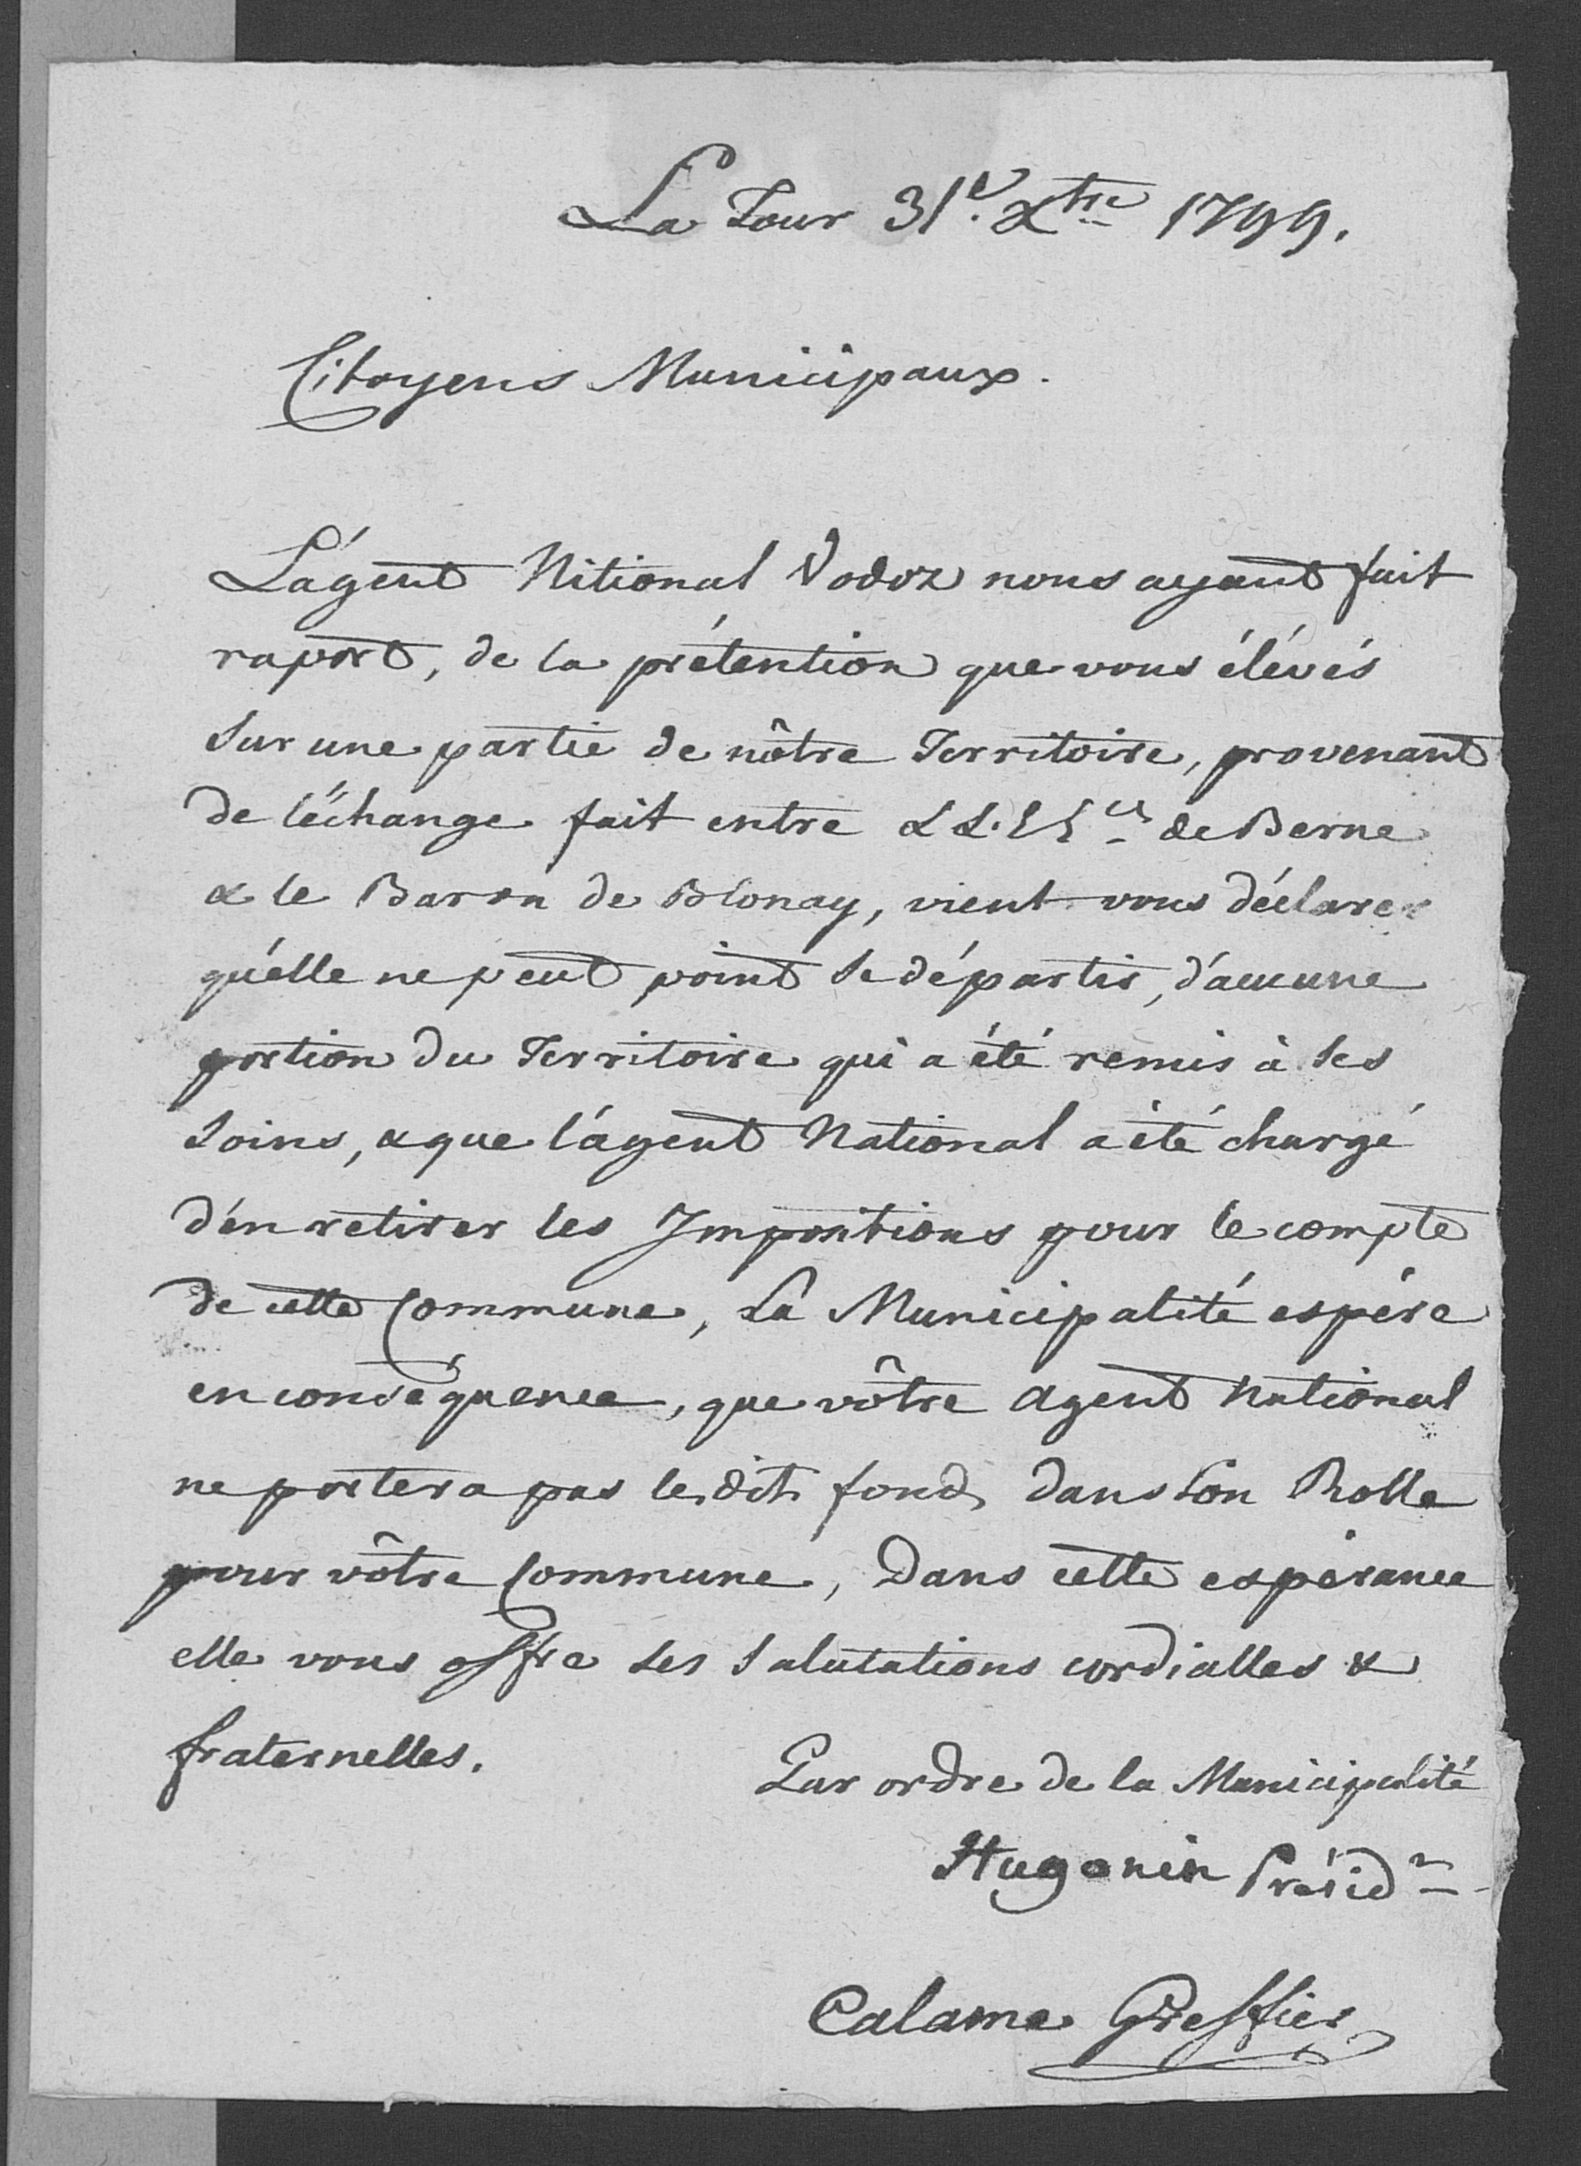 La Tour 31e. Xbre 1799.
Citoyens Municipaux.
L'agent National Vodoz nous ayant fait
raport, de la prétention que vous élévés
sur une partie de nôtre Territoire, provenant
de l'échange fait entre LL. EEces de Berne
& le Baron de Blonay, vient vous déclarer
qu'elle ne peut point se départir, d'aucune
portion du Territoire qui a été remis à ses
soins, & que l'agent National a été chargé
d'en retirer les Impositions pour le compte
de cette Commune, La Municipalité espére
en conséquence, que vôtre agent National
ne portera pas ledit fond, dans son Rolle
pour vôtre Commune, Dans cette espérance
elle vous offre ses salutations cordialles &
fraternelles.
Par ordre de la Municipalité
Hugonin Présidt
Calame Greffier